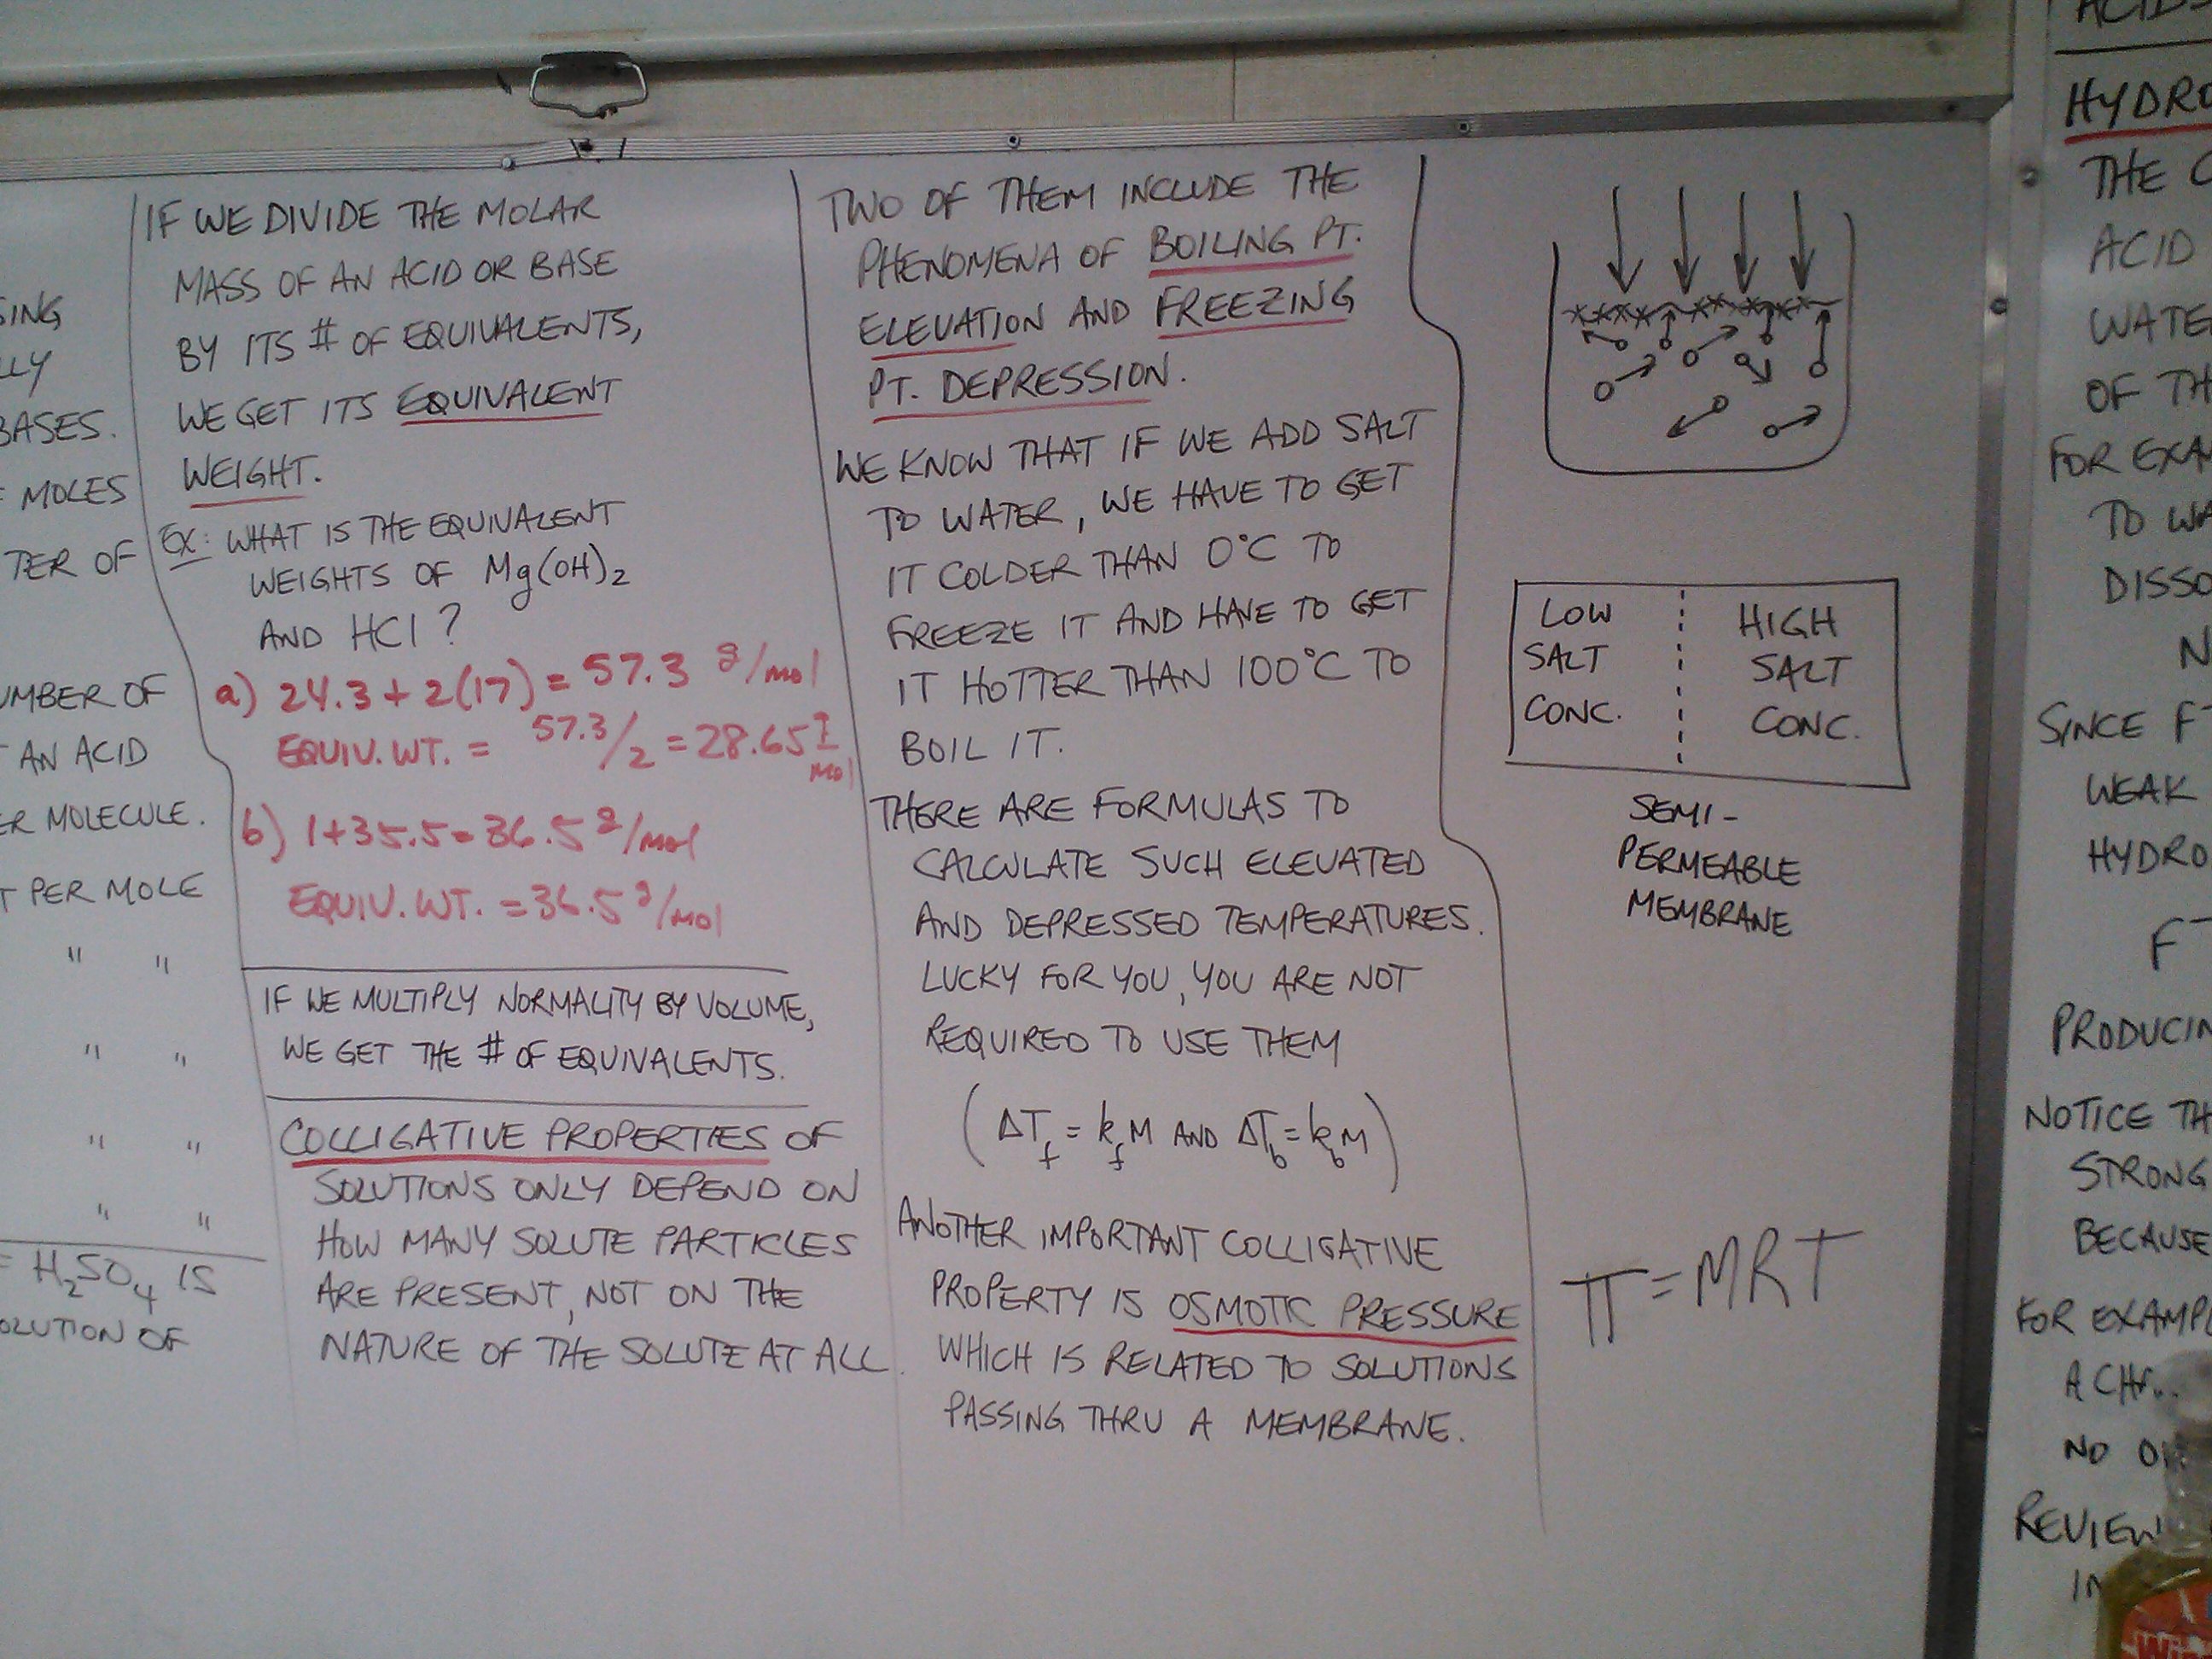 SING
LLY
BASES.
MOLES
TER OF
UMBER OF
AN ACID
ER MOLECULE.
T PER MOLE
" "
" "
" "
" "
= H₂SO₄ IS
OLUTION OF
IF WE DIVIDE THE MOLAR
MASS OF AN ACID OR BASE
BY ITS # OF EQUIVALENTS,
WE GET ITS EQUIVALENT
WEIGHT.
EX: WHAT IS THE EQUIVALENT
WEIGHTS OF Mg(OH)₂
AND HCl?
a) 24.3 + 2(17) = 57.3 g/mol
EQUIV. WT. = 57.3/2 = 28.65 g/mol
b) 1+35.5=36.5 g/mol
EQUIV. WT. = 36.5 g/mol
IF WE MULTIPLY NORMALITY BY VOLUME,
WE GET THE # OF EQUIVALENTS.
COLLIGATIVE PROPERTIES OF
SOLUTIONS ONLY DEPEND ON
HOW MANY SOLUTE PARTICLES
ARE PRESENT, NOT ON THE
NATURE OF THE SOLUTE AT ALL.
TWO OF THEM INCLUDE THE
PHENOMENA OF BOILING PT.
ELEVATION AND FREEZING
PT. DEPRESSION.
WE KNOW THAT IF WE ADD SALT
TO WATER, WE HAVE TO GET
IT COLDER THAN 0°C TO
FREEZE IT AND HAVE TO GET
IT HOTTER THAN 100°C TO
BOIL IT.
THERE ARE FORMULAS TO
CALCULATE SUCH ELEVATED
AND DEPRESSED TEMPERATURES.
LUCKY FOR YOU, YOU ARE NOT
REQUIRED TO USE THEM
(ΔT_f = k_f M AND ΔT_b = k_b M)
ANOTHER IMPORTANT COLLIGATIVE
PROPERTY IS OSMOTIC PRESSURE
WHICH IS RELATED TO SOLUTIONS
PASSING THRU A MEMBRANE.
LOW
SALT
CONC.
HIGH
SALT
CONC.
SEMI-
PERMEABLE
MEMBRANE
π = MRT
ACIDS
HYDRO
THE
ACID
WATE
OF TH
FOR EXAM
TO WA
DISSO
N
SINCE F⁻
WEAK
HYDRO
F⁻
PRODUCIN
NOTICE TH
STRONG
BECAUSE
FOR EXAMPL
A CH
NO
REVIEW
IN